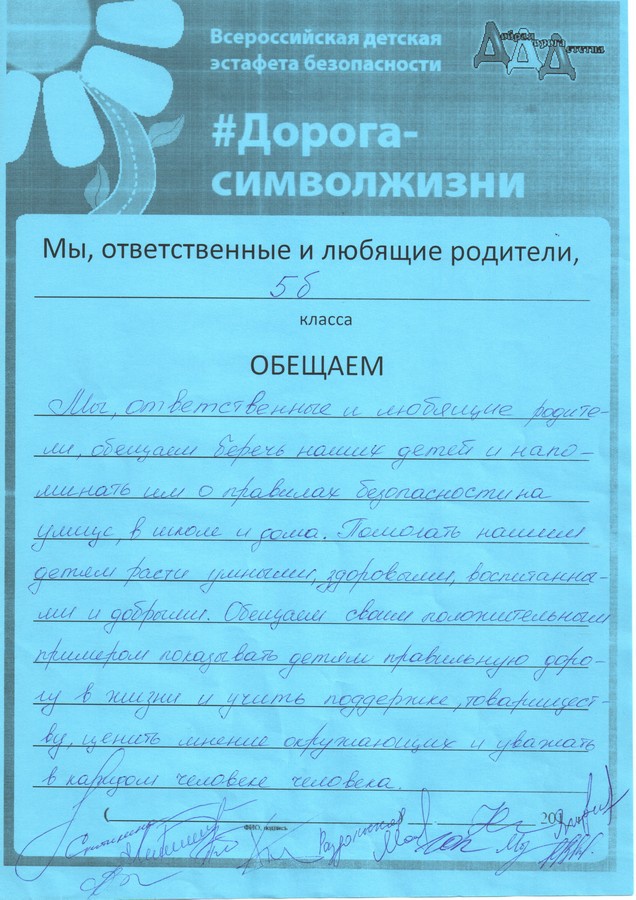 Всероссийская детская
эстафета безопасности
Добрая Дорога Детства
#Дорога-
символжизни
Мы, ответственные и любящие родители,
5б
класса
ОБЕЩАЕМ
Мы, ответственные и любящие родите-
ли, обещаем беречь наших детей и напо-
минать им о правилах безопасности на
улице, в школе и дома. Помогать нашим
детям расти умными, здоровыми, воспитанны-
ми и добрыми. Обещаем своим положительным
примером показывать детям правильную доро-
гу в жизни и учить поддержке, товарищест-
ву, ценить мнение окружающих и уважать
в каждом человеке человека.
(ФИО, подпись